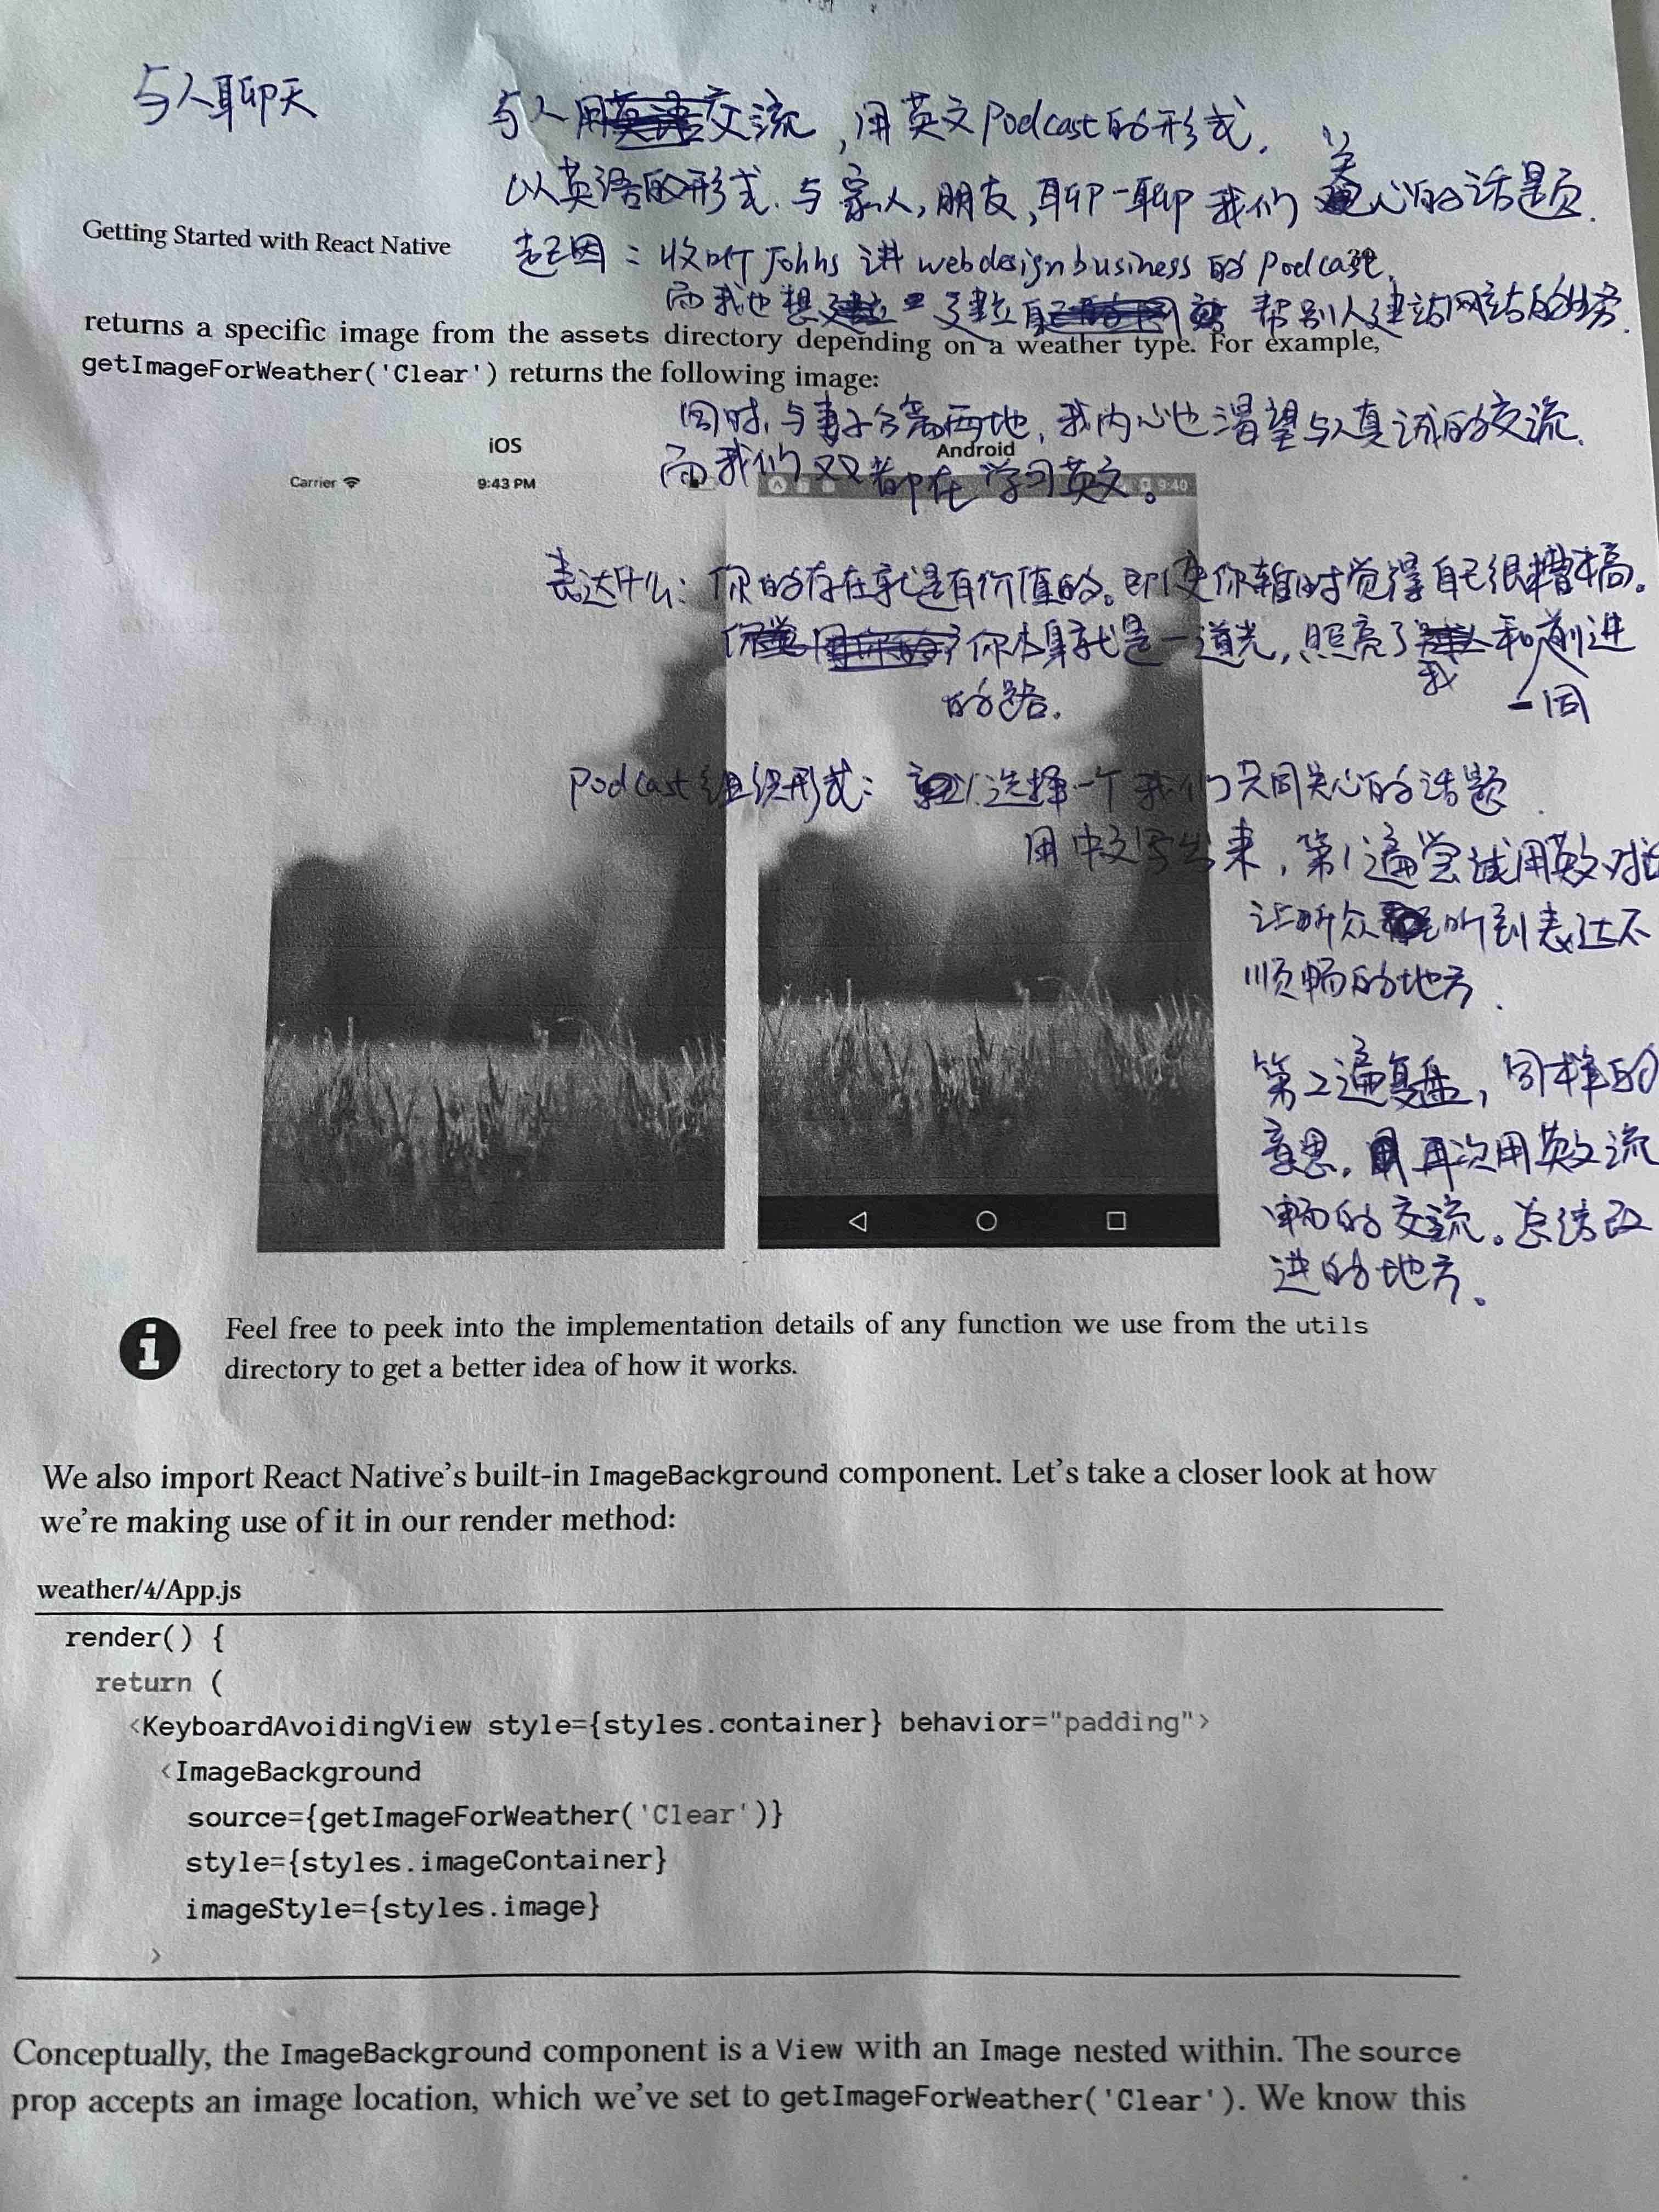 与人聊天
与人用交流,用英文Podcast的形式.
以英语的形式.与家人,朋友,聊一聊我们关心的话题.
Getting Started with React Native
起因:收听Johhs讲webdesignbusiness的Podcast,
而我也想建立自己帮别人建站网站的业务.
returns a specific image from the assets directory depending on a weather type. For example,
getImageForWeather('Clear') returns the following image:
同时,与妻子分离两地,我内心也渴望与人真诚的交流.
iOS
Android
而我们双双都在学习英文。
Carrier
9:43 PM
9:40
表达什么:你的存在就是有价值的。即使你暂时觉得自己很糟糕。
你本身就是一道光,照亮了我和一同前进
的路.
Podcast组织形式:选择一个我们共同关心的话题.
用中文写出来,第1遍尝试用英文对话
让听众听到表达不
顺畅的地方.
第2遍复盘,同样的
意思,再次用英文流
畅的交流。总结改
进的地方。
i
Feel free to peek into the implementation details of any function we use from the utils
directory to get a better idea of how it works.
We also import React Native's built-in ImageBackground component. Let's take a closer look at how
we're making use of it in our render method:
weather/4/App.js
render() {
return (
<KeyboardAvoidingView style={styles.container} behavior="padding">
<ImageBackground
source={getImageForWeather('Clear')}
style={styles.imageContainer}
imageStyle={styles.image}
>
Conceptually, the ImageBackground component is a View with an Image nested within. The source
prop accepts an image location, which we've set to getImageForWeather('Clear'). We know this